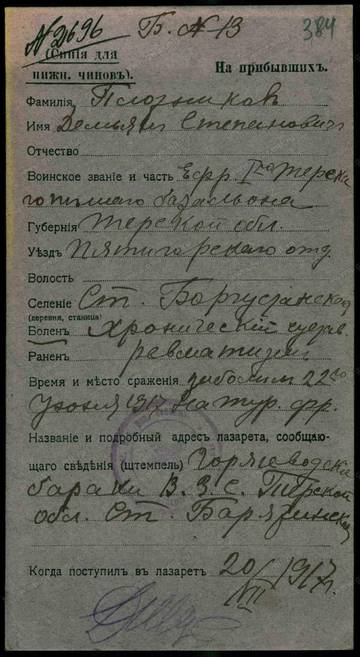 № 2696 Б. № 13 384
(Синія для
нижн. чиновъ). На прибывшихъ.
Фамилія Плотников
Имя Демьян Степанович
Отчество
Воинское званіе и часть Ефр. 1го Терска
го пѣшаго батальона
Губернія Терской обл.
Уѣздъ Пятигорскаго отд.
Волость
Селеніе Ст. Боргустанской
(деревня, станица)
Боленъ Хроническій
Раненъ ревматизм
Время и мѣсто сраженія заболѣл 22го
Іюня 1917 На тур. фр.
Названіе и подробный адресъ лазарета, сообщаю-
щаго свѣдѣнія (штемпель) Горячеводскіе
бараки В. З. С. Терской
обл. Ст. Барятинской
Когда поступилъ въ лазаретъ 20/VII 1917 г.